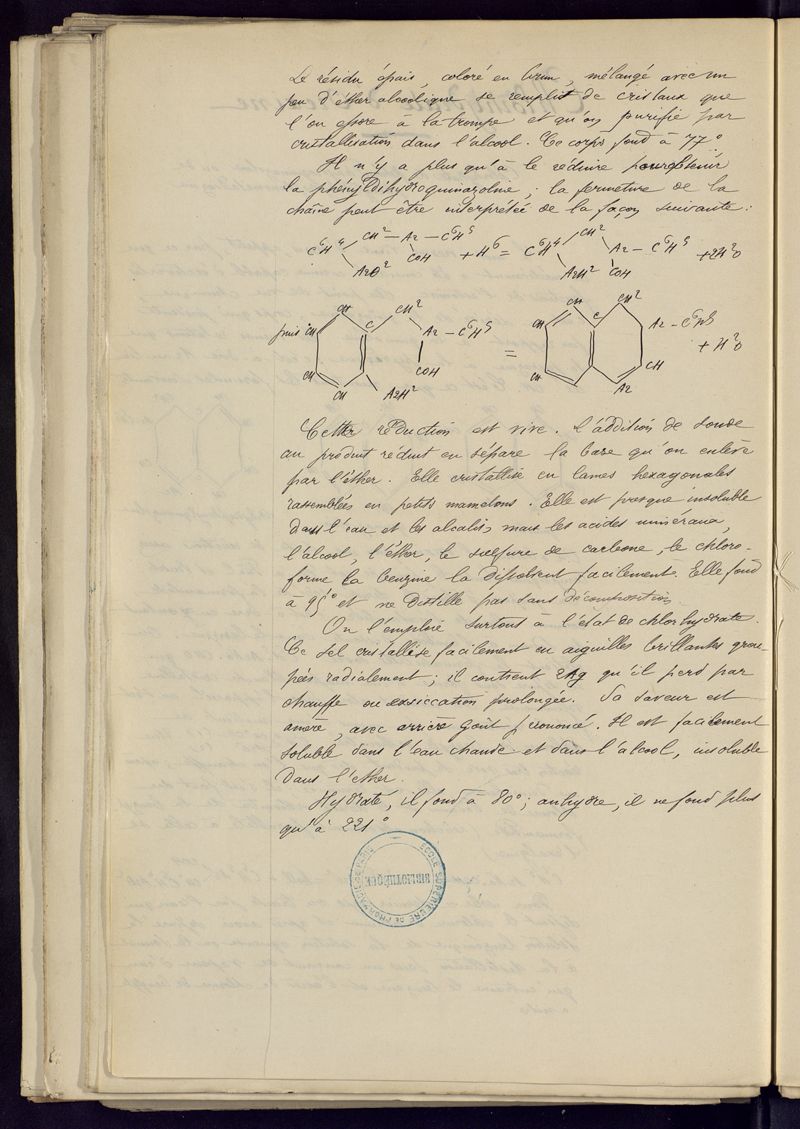 Le résidu épais, coloré en brun, mélangé avec un
peu d'éther alcoolique se remplit de cristaux que
l'on essore à la trompe et qu'on purifie par
cristallisation dans l'alcool. Ce corps fond à 77°
Il n'y a plus qu'à le réduire pour obtenir
la phényldihydroquinazoline; la fermeture de la
chaîne peut être interprétée de la façon suivante:
C⁶H⁴ CH² — Az — C⁶H⁵ COH AzO² + H⁶ = C⁶H⁴ CH² Az — C⁶H⁵ AzH² COH + 2H²O
puis CH CH C CH² Az — C⁶H⁵ COH AzH² CH CH = CH CH C CH² Az — C⁶H⁵ CH Az CH + H²O
Cette réduction est vive. L'addition de soude
au produit réduit en sépare la base qu'on enlève
par l'éther. Elle cristallise en lames hexagonales
rassemblées en petits mamelons. Elle est presque insoluble
dans l'eau et les alcalis, mais les acides minéraux,
l'alcool, l'éther, le sulfure de carbone, le chloro-
forme la benzine la dissolvent facilement. Elle fond
à 95° et ne distille pas sans décomposition
On l'emploie surtout à l'état de chlorhydrate.
Ce sel cristallise facilement en aiguilles brillantes grou-
pées radialement; il contient 2Aq qu'il perd par
chauffe ou exsiccation prolongée. Sa saveur est
amère, avec arrière goût prononcé. Il est facilement
soluble dans l'eau chaude et dans l'alcool, insoluble
dans l'ether.
Hydraté, il fond à 80°; anhydre, il ne fond plus
qu'à 221°
ECOLE SUPERIEURE DE PHARMACIE DE PARIS
BIBLIOTHÈQUE